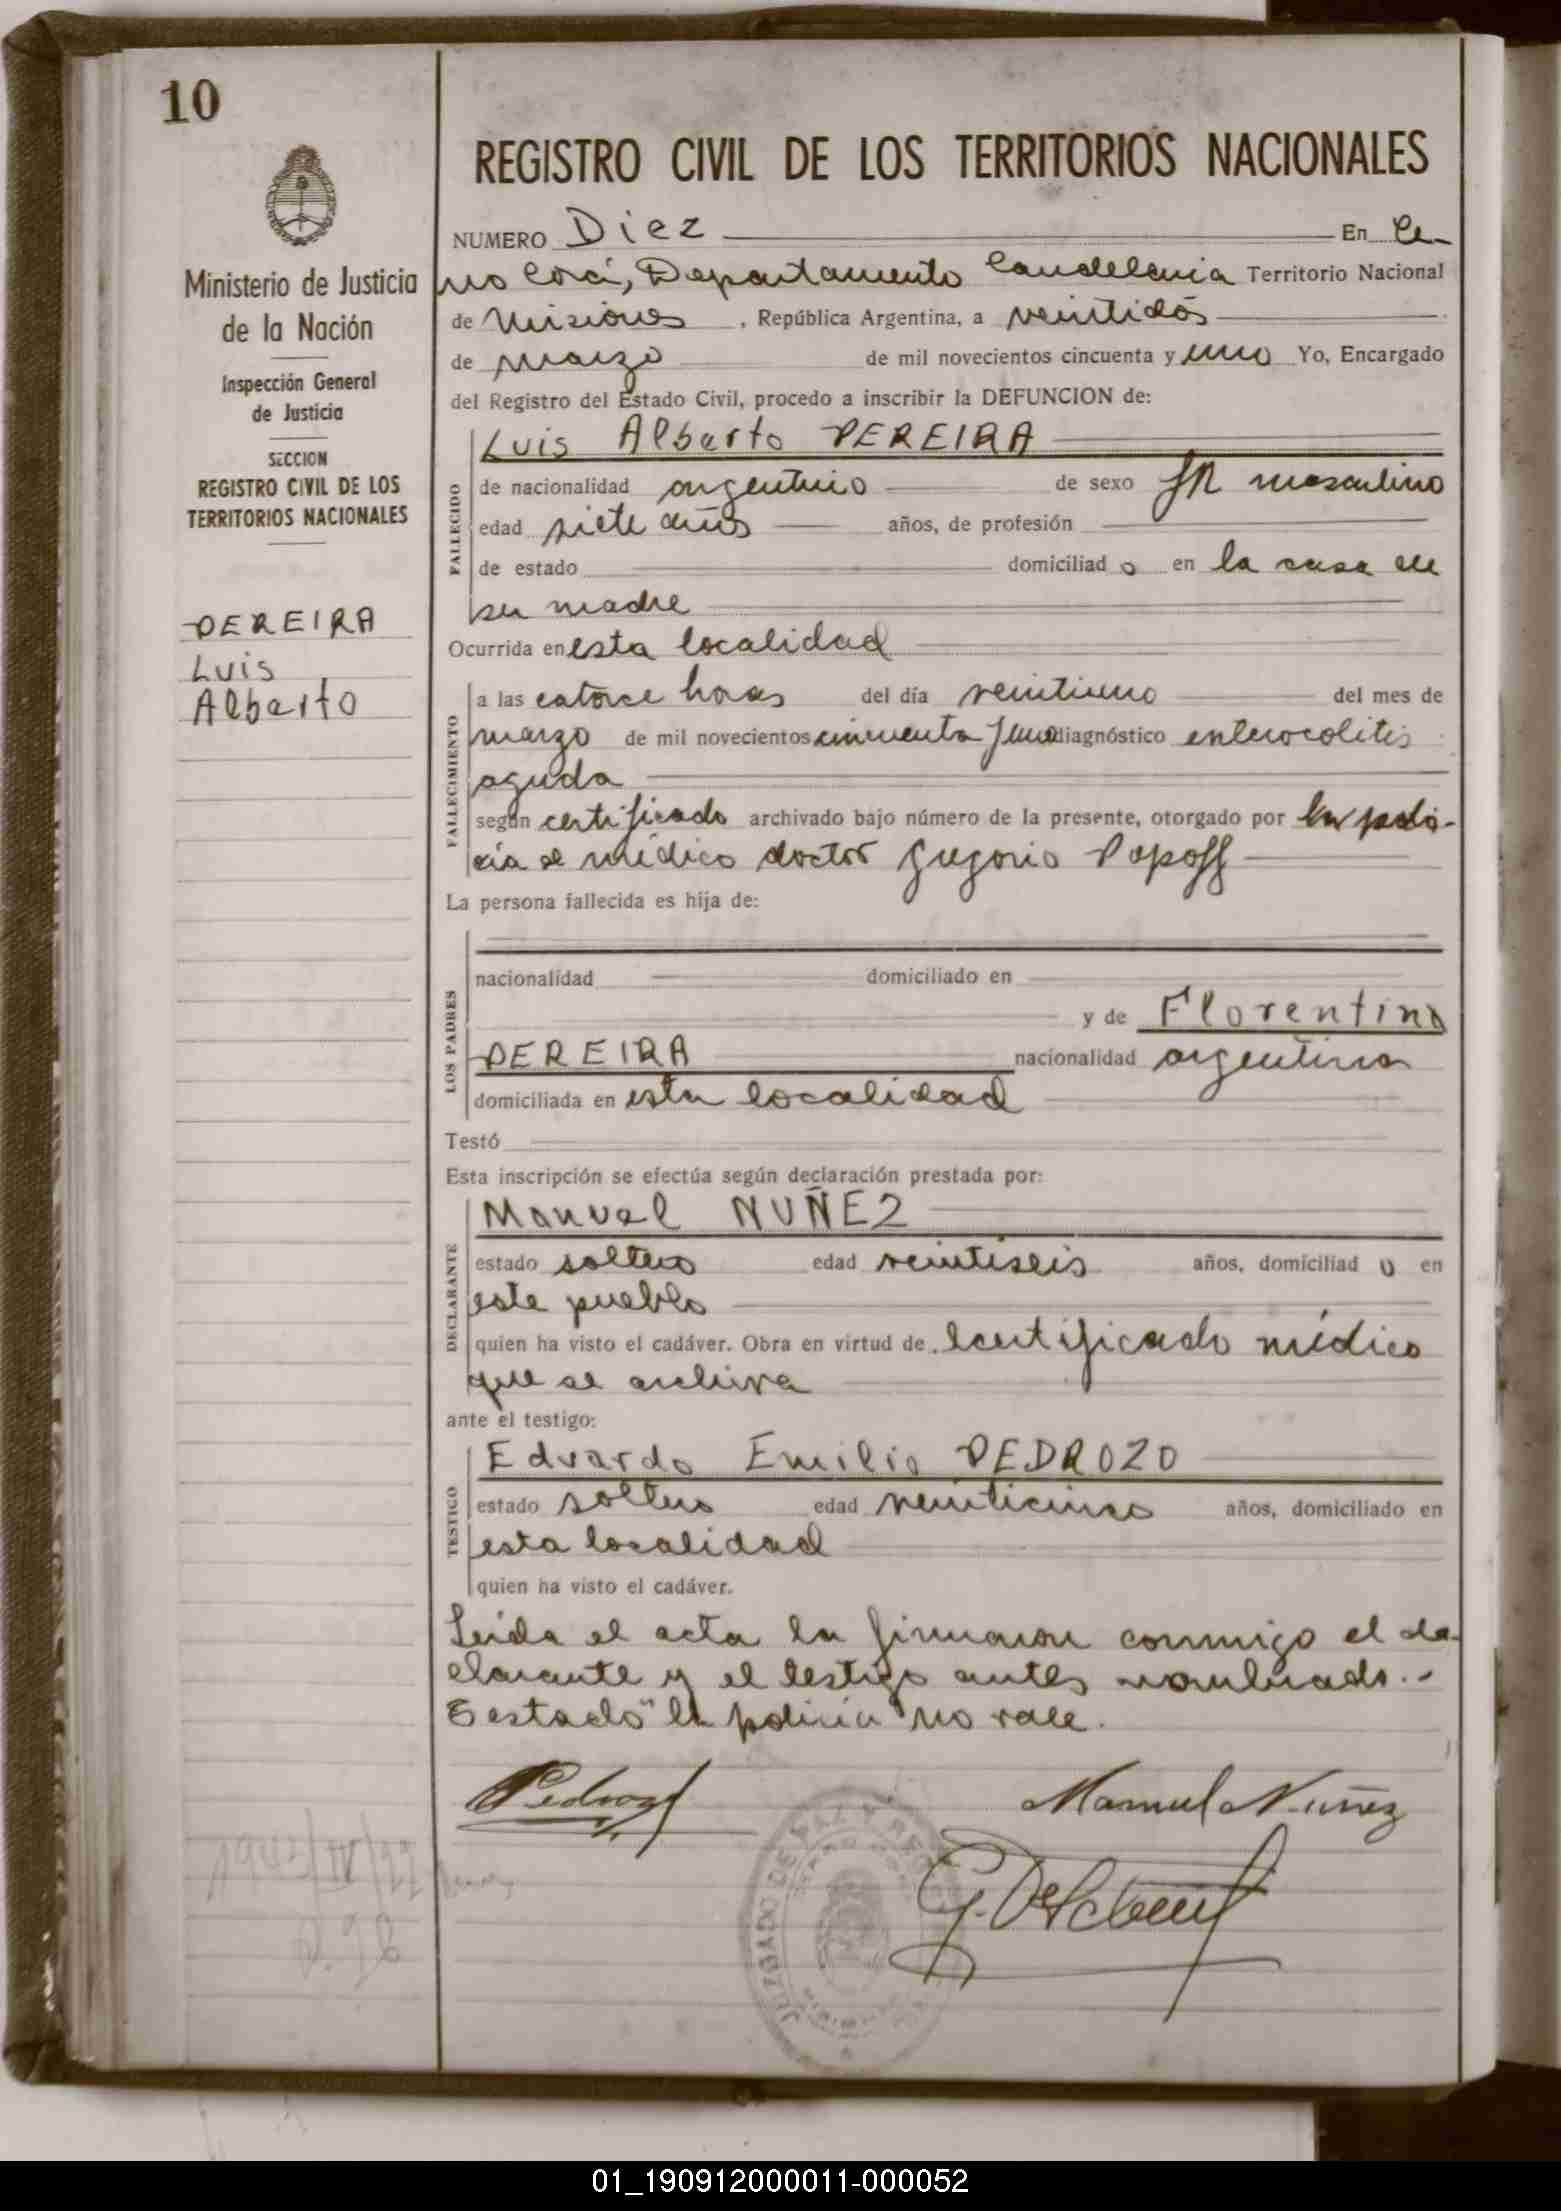 10
Ministerio de Justicia
de la Nación
Inspección General
de Justicia
SECCION
REGISTRO CIVIL DE LOS
TERRITORIOS NACIONALES
PEREIRA
Luis
Alberto
REGISTRO CIVIL DE LOS TERRITORIOS NACIONALES
NUMERO Diez En Ce-
rro Corá, Departamento Candelaria Territorio Nacional
de Misiones, República Argentina, a veintidós
de marzo de mil novecientos cincuenta y uno Yo, Encargado
del Registro del Estado Civil, procedo a inscribir la DEFUNCION de:
Luis Alberto PEREIRA
FALLECIDO
de nacionalidad argentino de sexo masculino
edad siete días años, de profesión
de estado domiciliad o en la casa de
su madre
Ocurrida en esta localidad
FALLECIMIENTO
a las catorce horas del día veintiuno del mes de
marzo de mil novecientos cincuenta y uno diagnóstico enterocolitis
aguda
según certificado archivado bajo número de la presente, otorgado por la poli-
cía el médico doctor Gregorio Popoff
La persona fallecida es hija de:
LOS PADRES
nacionalidad domiciliado en
y de Florentina
PEREIRA nacionalidad argentina
domiciliada en esta localidad
Testó
Esta inscripción se efectúa según declaración prestada por:
DECLARANTE
Manuel NUÑEZ
estado soltero edad veintiseis años, domiciliad o en
este pueblo
quien ha visto el cadáver. Obra en virtud de certificado médico
que se archiva
ante el testigo:
TESTIGO
Eduardo Emilio PEDROZO
estado soltero edad veinticinco años, domiciliado en
esta localidad
quien ha visto el cadáver.
Leída el acta la firmaron conmigo el de-
clarante y el testigo antes nombrado.-
Testado "la policía" no vale.
Pedrozo
Manuel Nuñez
JUZGADO DE PAZ Y REG
01_190912000011-000052